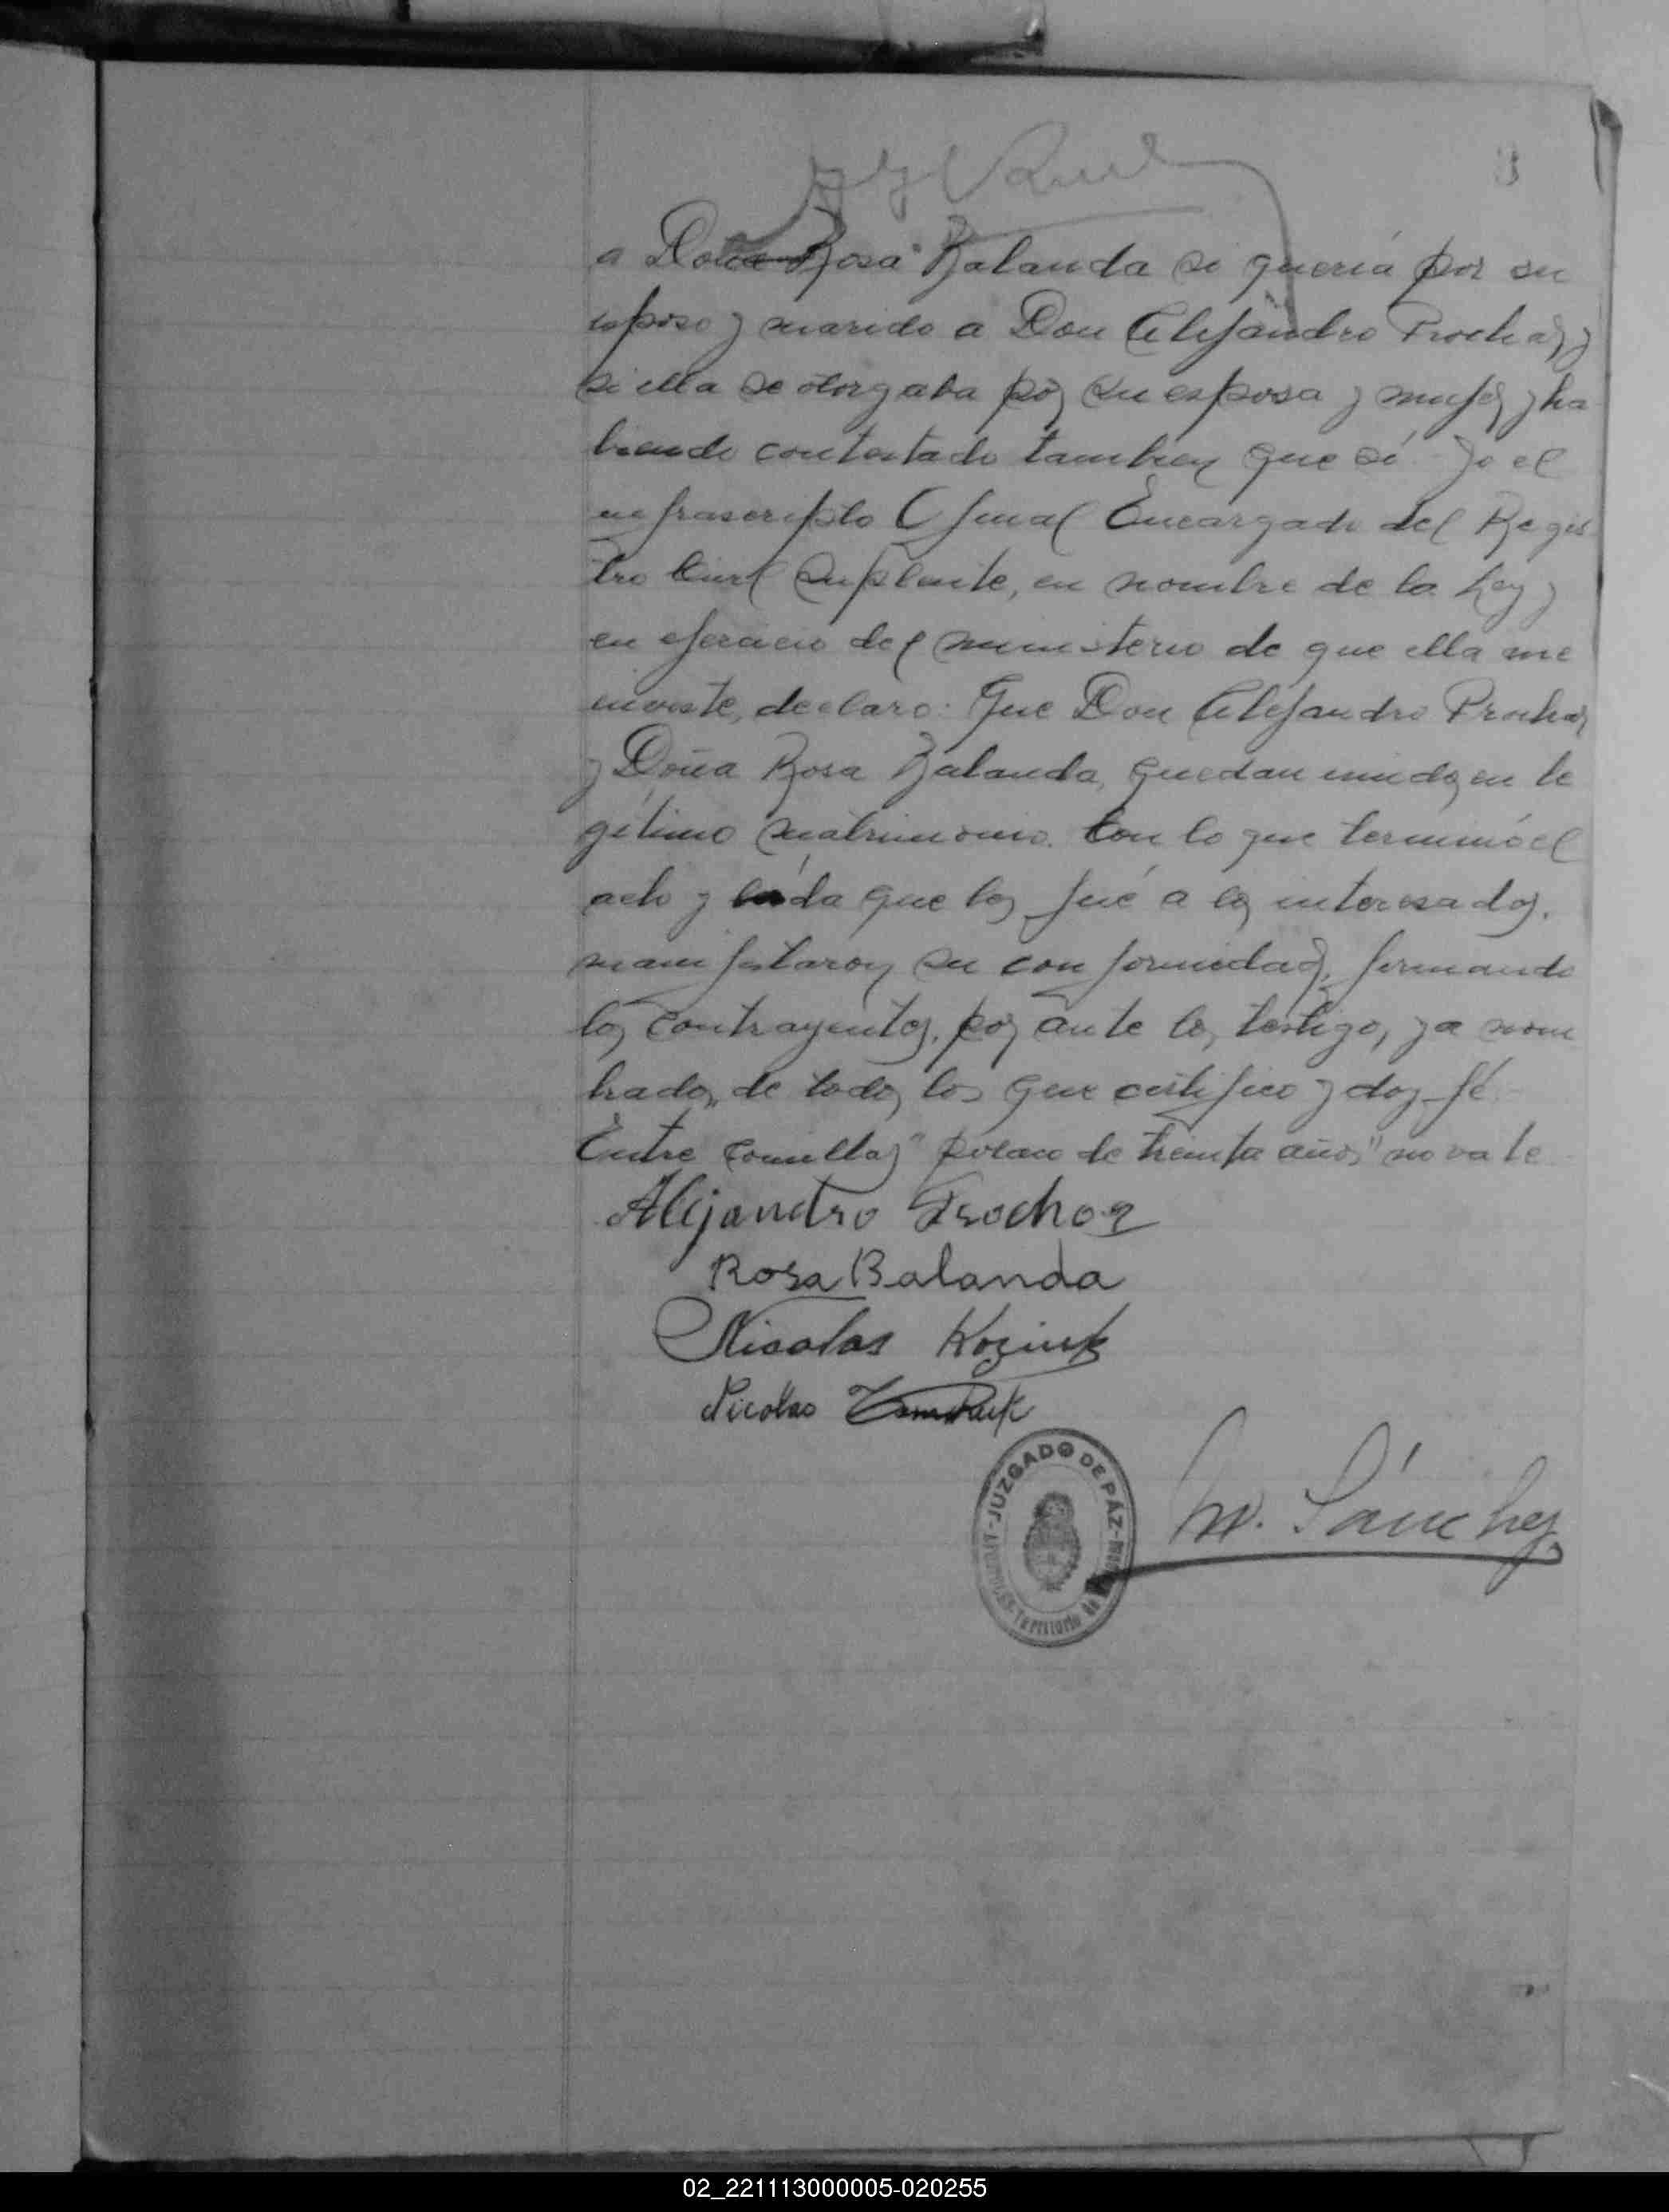 3
a Doña Rosa Balanda si quería por su
esposo y marido a Don Alejandro Prochaz y
si ella se otorgaba por su esposa y mujer y ha
biendo contestado tambien que sí. Yo el
infrascripto Oficial Encargado del Regis
tro Civil Suplente, en nombre de la Ley y
en ejercicio del ministerio de que ella me
inviste, declaro: Que Don Alejandro Prochaz
y Doña Rosa Balanda, quedan unidos en le
gítimo matrimonio. Con lo que terminó el
acto y leída que les fué a los interesados,
manifestaron su conformidad, firmando
los contrayentes, por ante los testigos ya nom
brados, de todos los que certifico y doy fé
Entre comillas "polaco de treinta años" no vale
Alejandro Prochaz
Rosa Balanda
Nicolas Koziuk
Nicolas
JUZGADO DE PÁZ
Territorio de
M. Sánchez
02_221113000005-020255